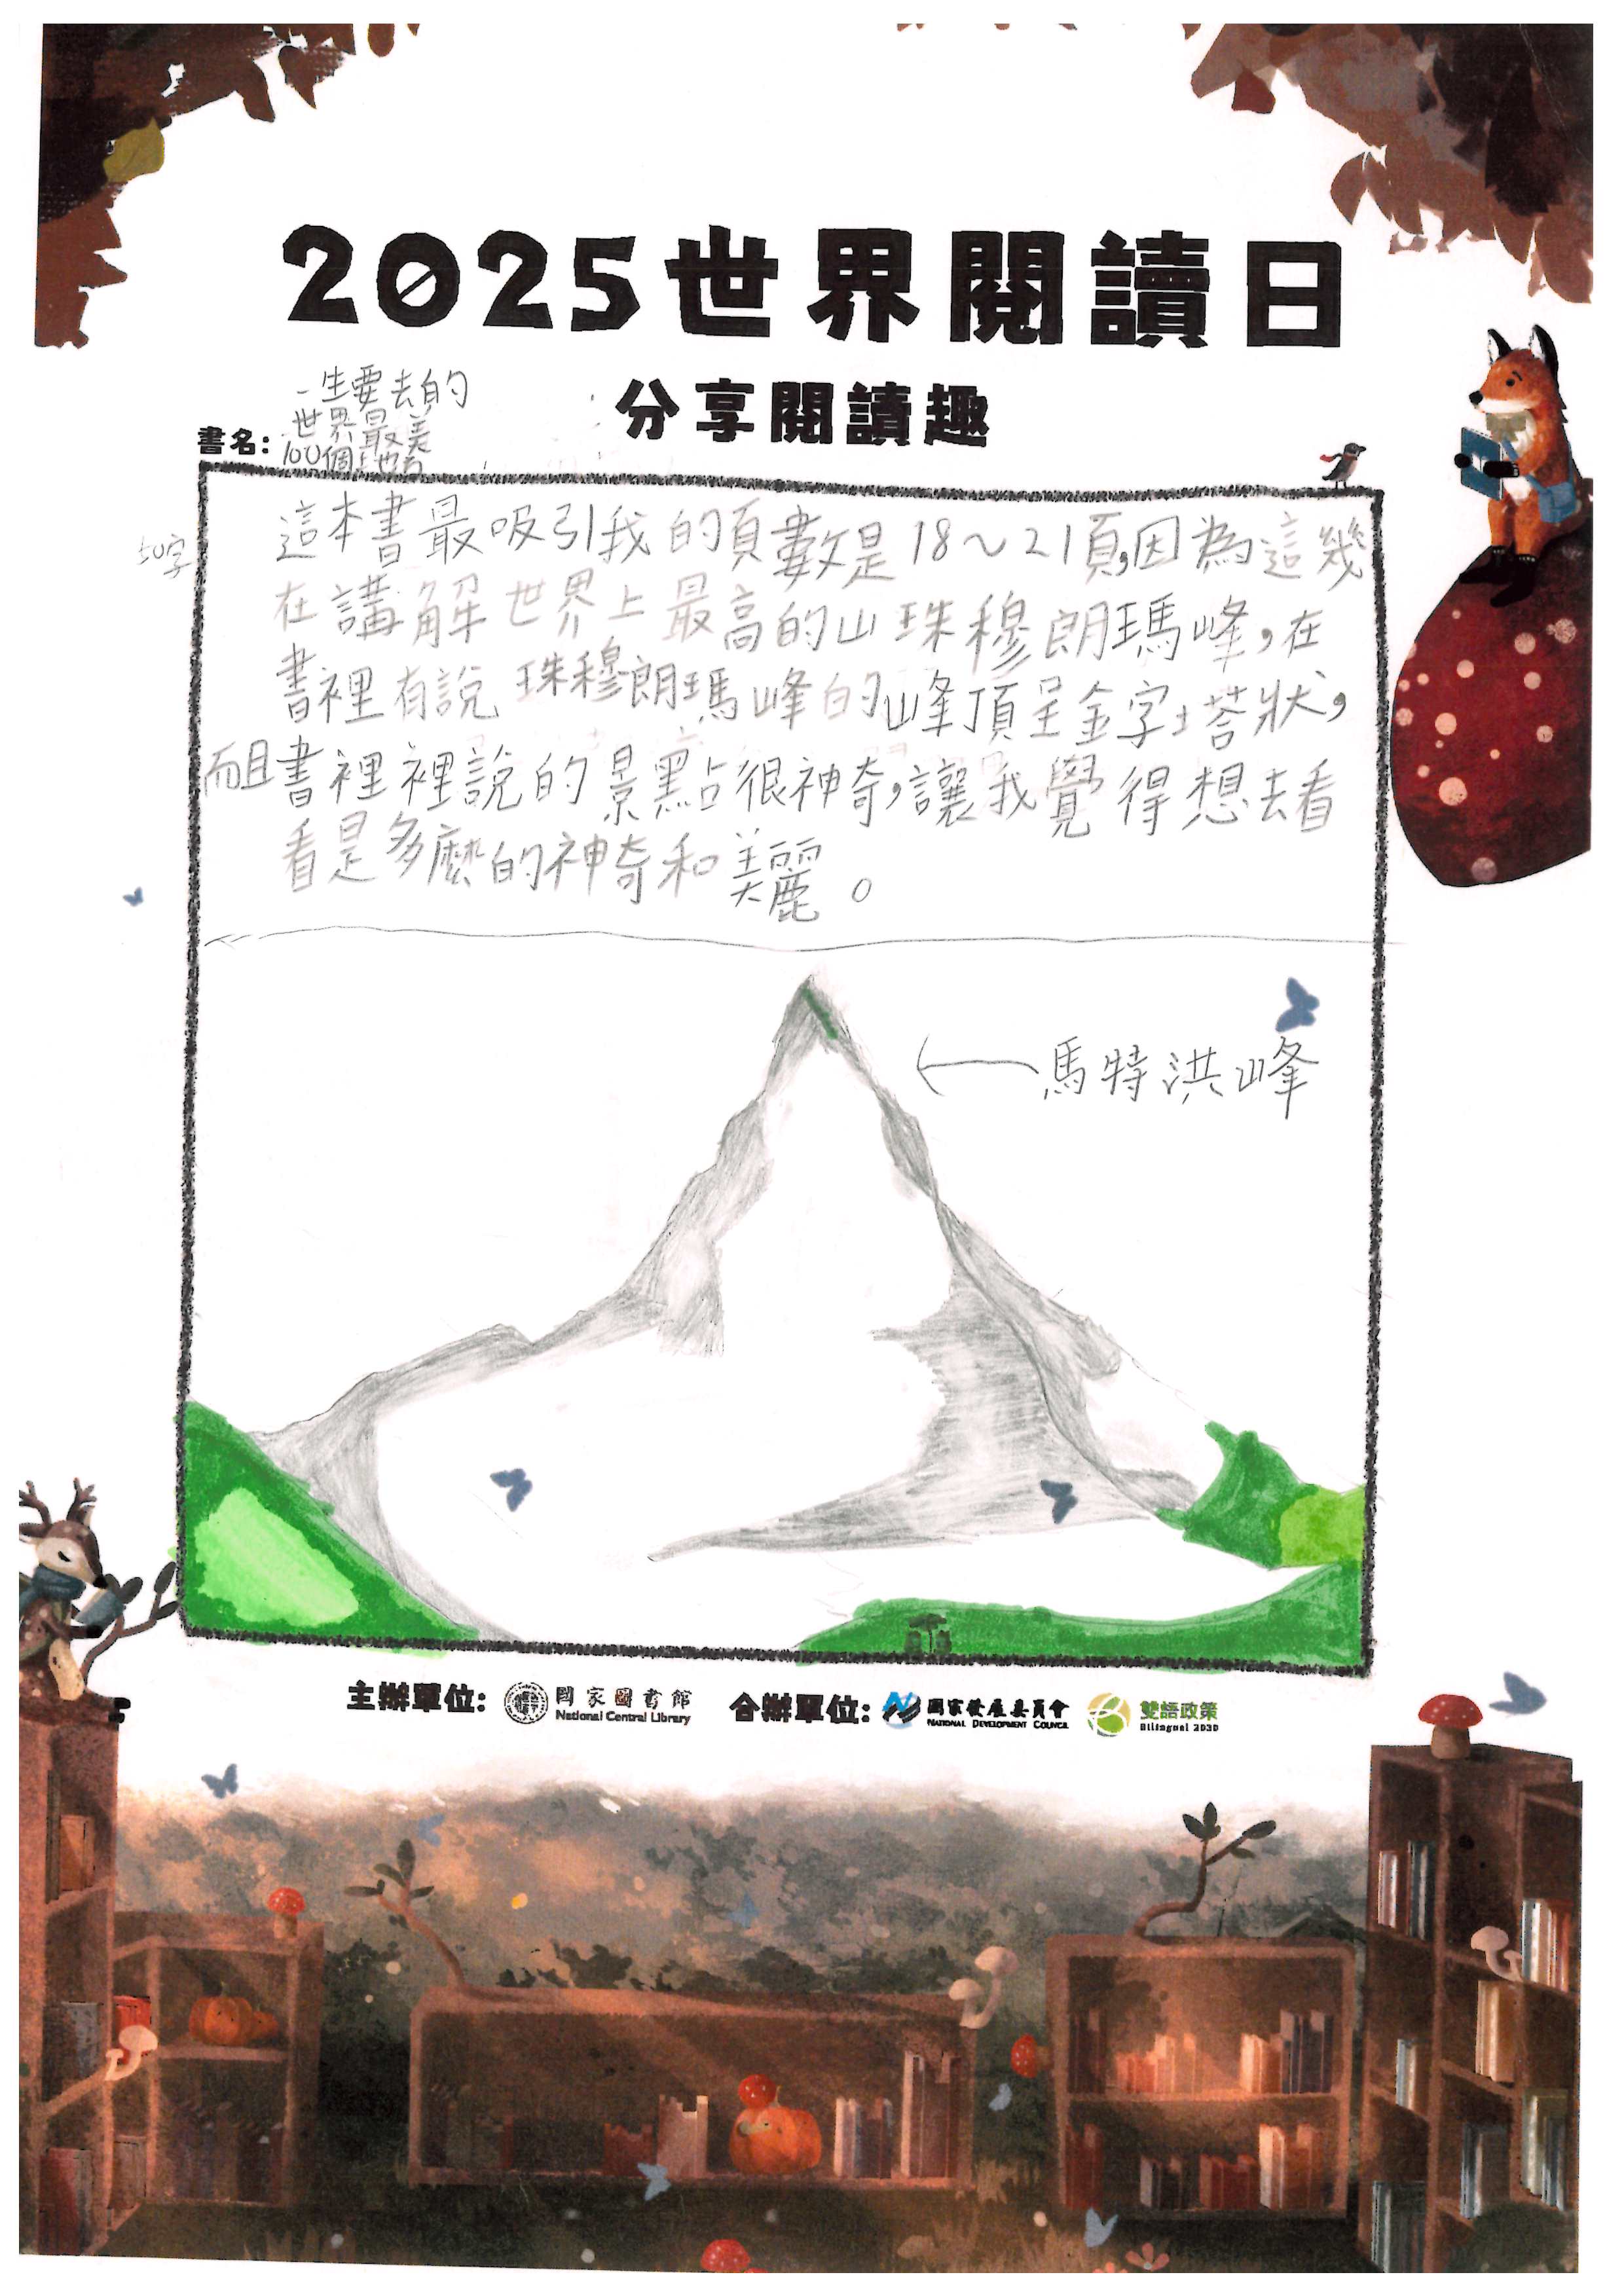 2025世界閱讀日
分享閱讀趣
書名:
一生要去的
世界最美
100個地方
50字
這本書最吸引我的頁數是18~21頁,因為這幾
在講解世界上最高的山珠穆朗瑪峰,在
書裡有說珠穆朗瑪峰的峰頂呈金字塔狀,
而且書裡裡說的景點很神奇,讓我覺得想去看
看是多麼的神奇和美麗。
馬特洪峰
主辦單位: 國家圖書館 National Central Library 合辦單位: 國家發展委員會 NATIONAL DEVELOPMENT COUNCIL 雙語政策 Bilingual 2030